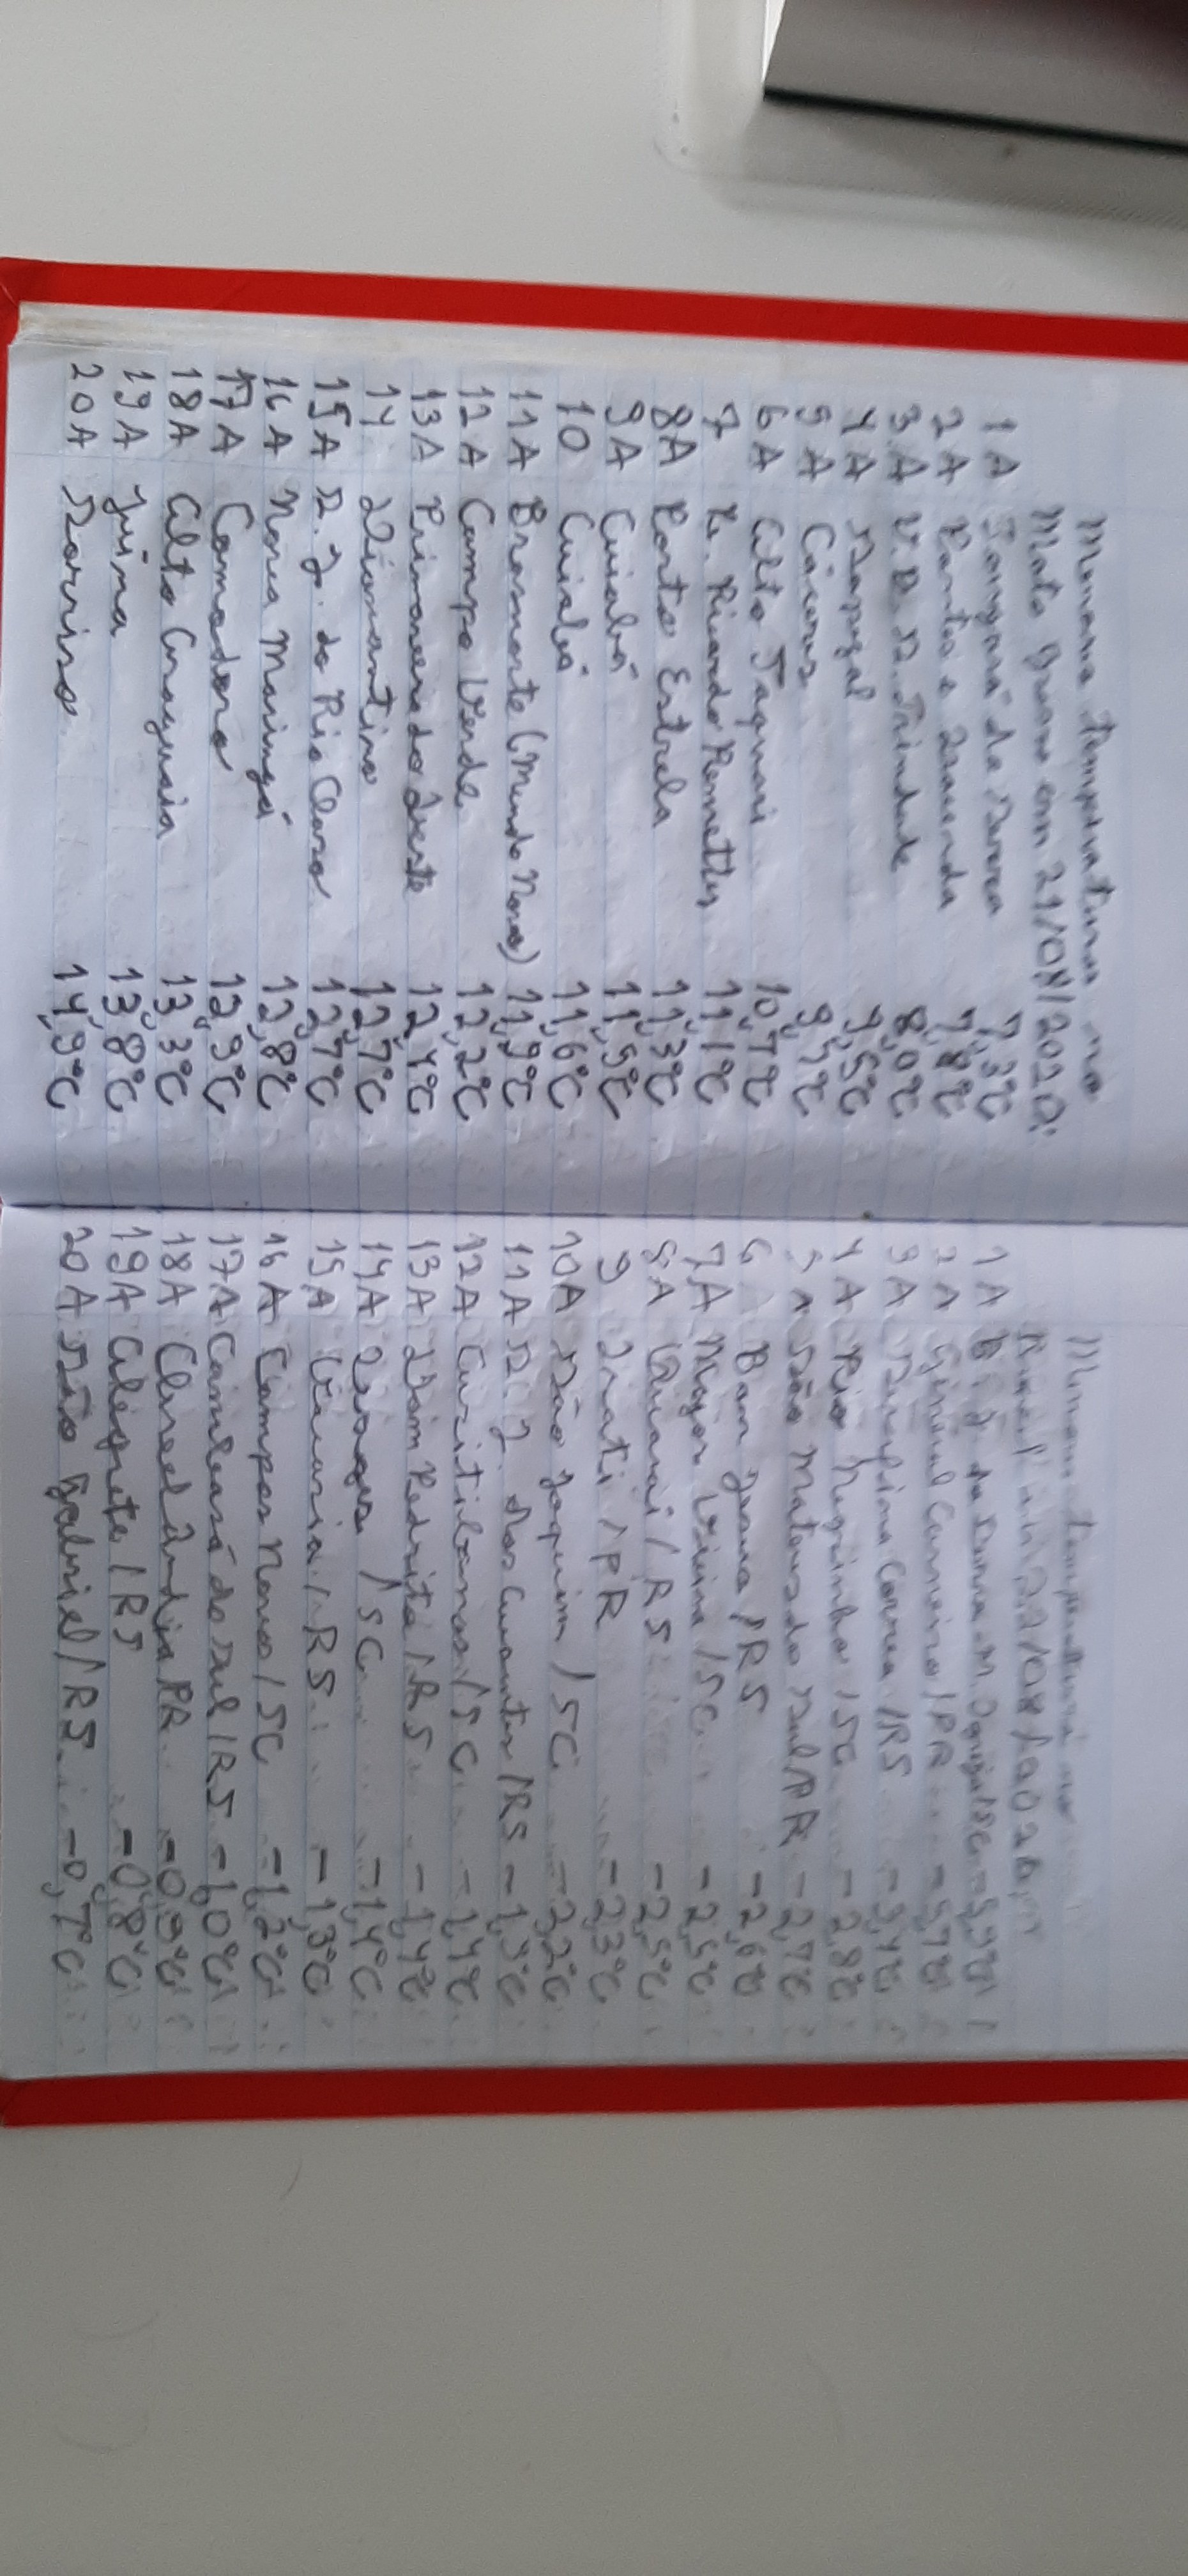 Menores temperaturas no
Mato Grosso em 21/08/2020:
1A Tangará da Serra 7,3°C
2A Pontes e Lacerda 7,8°C
3A V.B.S. Trindade 8,0°C
4A Sapezal 9,5°C
5A Cáceres 9,7°C
6A Alto Taquari 10,7°C
7 Ro. Ricardo Remetter 11,1°C
8A Porto Estrela 11,3°C
9A Cuiabá 11,5°C
10 Cuiabá 11,6°C
11A Brasnorte (Mundo Novo) 11,9°C
12A Campo Verde 12,2°C
13A Primavera do Leste 12,4°C
14 Diamantino 12,7°C
15A S. J. do Rio Claro 12,7°C
16A Nova Maringá 12,8°C
17A Comodoro 12,9°C
18A Alto Araguaia 13,3°C
19A Juína 13,8°C
20A Sorriso 14,9°C
Menores temperaturas no
Brasil em 22/08/2020
1A B. J. da Serra-M. Igreja/SC
2A General Carneiro/PR
3A Serafina Correa/RS -3,4°C
4A Rio Negrinho/SC -2,8°C
5A São Mateus do Sul/PR -2,7°C
6 Bom Jesus/RS -2,6°C
7A Major Vieira/SC -2,5°C
8A Quaraí/RS -2,5°C
9 Irati/PR -2,3°C
10A São Joaquim/SC -2,2°C
11A S. J. dos Ausentes/RS
12A Curitibanos/SC -1,4°C
13A Dom Pedrito/RS -1,4°C
14A /SC -1,4°C
15A Vacaria/RS -1,3°C
16A Campos Novos/SC -1,2°C
17A do Sul/RS -1,0°C
18A Clevelândia/PR -0,9°C
19A Alegrete/RS -0,8°C
20A São Gabriel/RS -0,7°C